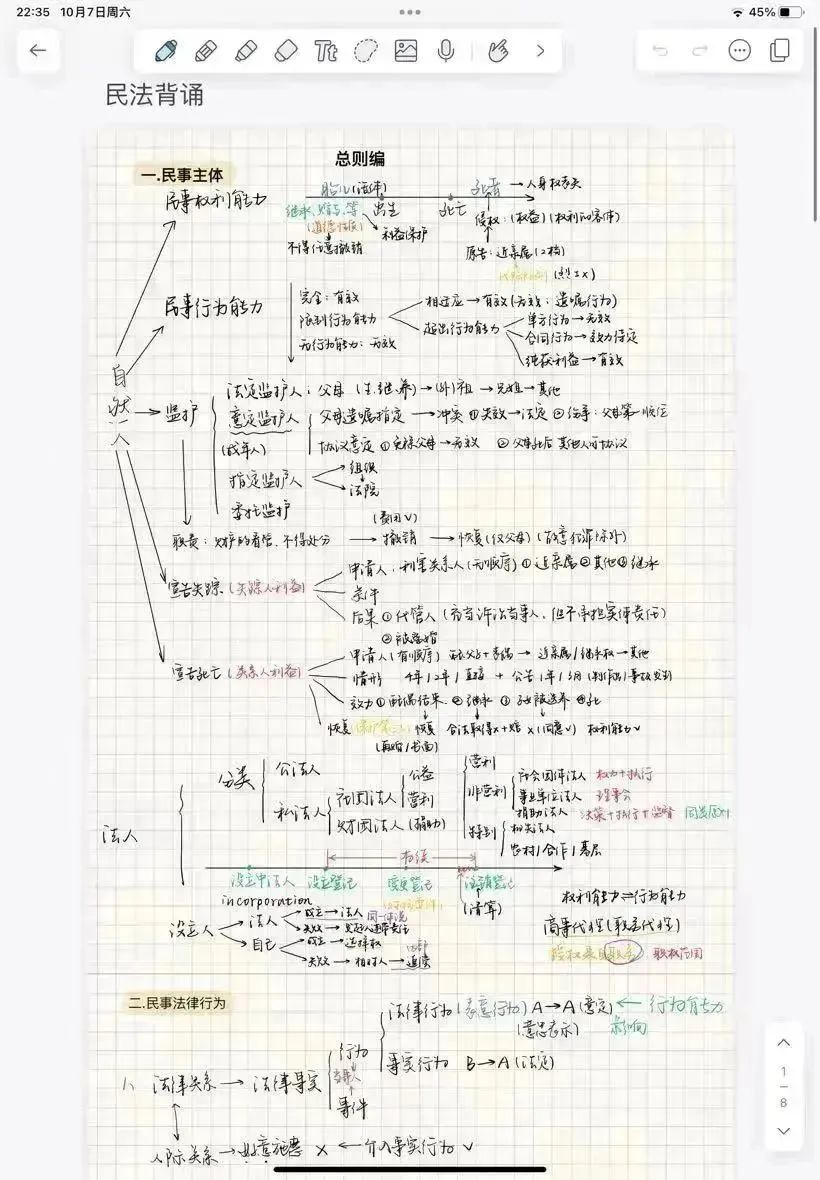 22:35 10月7日周六
45%
Tt
民法背诵
总则编
一.民事主体
民事权利能力
胎儿(活体) 出生 死亡 死者 → 人身权丧失
继承、赠与、等
(道德性质)
不得任意撤销
利益保护
侵权:(权益)(权利的客体)
原告:近亲属(2档)
民事行为能力
完全:有效
限制行为能力
无行为能力:无效
相适应 → 有效(无效:遗嘱行为)
超出行为能力
单方行为 → 无效
合同行为 → 效力待定
纯获利益 → 有效
自然人
监护
法定监护人:父母(生、继、养) → (外)祖 → 兄姐 → 其他
意定监护人
(成年人)
父母遗嘱指定 → 冲突 ①失效→法定 ②给事:父母第一顺位
协议意定 ①免除父母→无效 ②父母死后其他人可协议
指定监护人
组织
法院
委托监护
职责:财产的看管、不得处分 → 撤销 → 恢复(仅父母)(故意犯罪除外)
(费用∨)
宣告失踪(失踪人利益)
申请人:利害关系人(无顺序) ①近亲属②其他③继承
条件
后果 ①代管人(充当诉讼当事人,但不承担实体责任)
宣告死亡(关系人利益)
申请人(有顺序) 配父子+丧偶 → 近亲属/继承权→其他
情形 4年/2年/直接 + 公告1年/3月
效力 ①配偶结果 ②继承 ③子女被送养 ④死
恢复 恢复 合法取得x+赔 x(同意∨) 权利能力∨
(再婚/书面)
法人
分类
公法人
私法人
社团法人
财团法人(捐助)
公益
营利
营利
非营利
特别
社会团体法人 权力+执行
事业单位法人 理事会
捐助法人 决策+执行+监督
机关法人
农村/合作/基层
存续
设立中法人 设立登记 变更登记 注销登记
incorporation
(清算)
设立人
法人
成立 → 法人 同一体说
失败 → 设立人连带责任
自己
成立 → 选择权
失败 → 相对人 → 追偿
内部
权利能力⇌行为能力
高等代理(职务代理)
授权来自职务 职权范围
二.民事法律行为
1、法律关系 → 法律事实
行为
事件
法律行为(表意行为) A→A(意定) ← 行为能力
(意思表示) 影响
事实行为 B→A(法定)
人际关系 → 好意施惠 x ← 介入事实行为 ∨
1
8